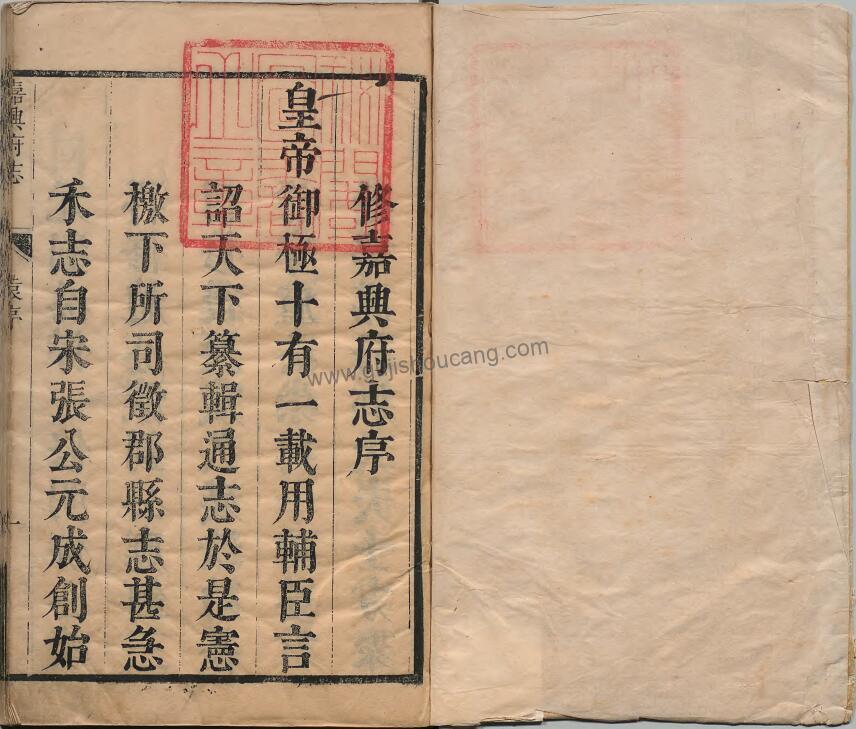 修嘉興府志序
皇帝御極十有一載用輔臣言
詔天下纂輯通志於是憲
檄下所司徵郡縣志甚急
禾志自宋張公元成創始
嘉興府志
袁序
一